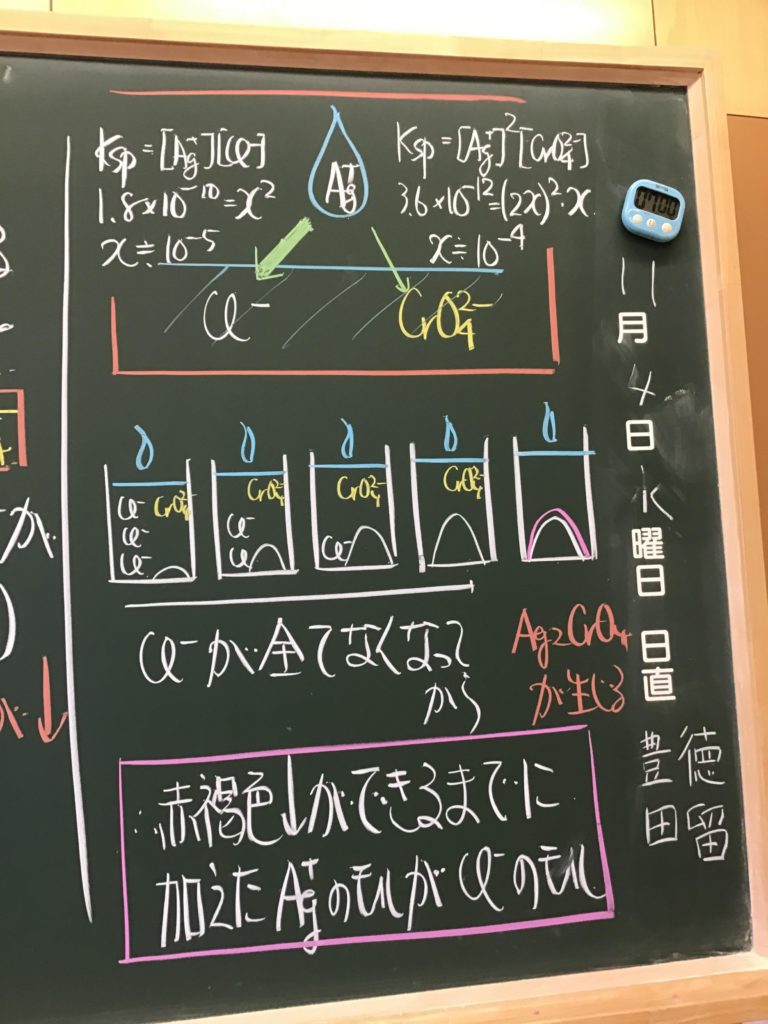 Ksp=[Ag⁺][Cl⁻]
1.8×10⁻¹⁰=x²
x≒10⁻⁵
Ag⁺
Ksp=[Ag⁺]²[CrO₄²⁻]
3.6×10⁻¹²=(2x)²·x
x≒10⁻⁴
Cl⁻
CrO₄²⁻
Cl⁻
Cl⁻
Cl⁻
CrO₄²⁻
Cl⁻
Cl⁻
CrO₄²⁻
Cl⁻
CrO₄²⁻
CrO₄²⁻
Cl⁻が全てなくなって
から
Ag₂CrO₄
が生じる
∴赤褐色↓ができるまでに
加えたAg⁺のモルがCl⁻のモル
11月4日水曜日 日直
徳留
豊田
が
が↓